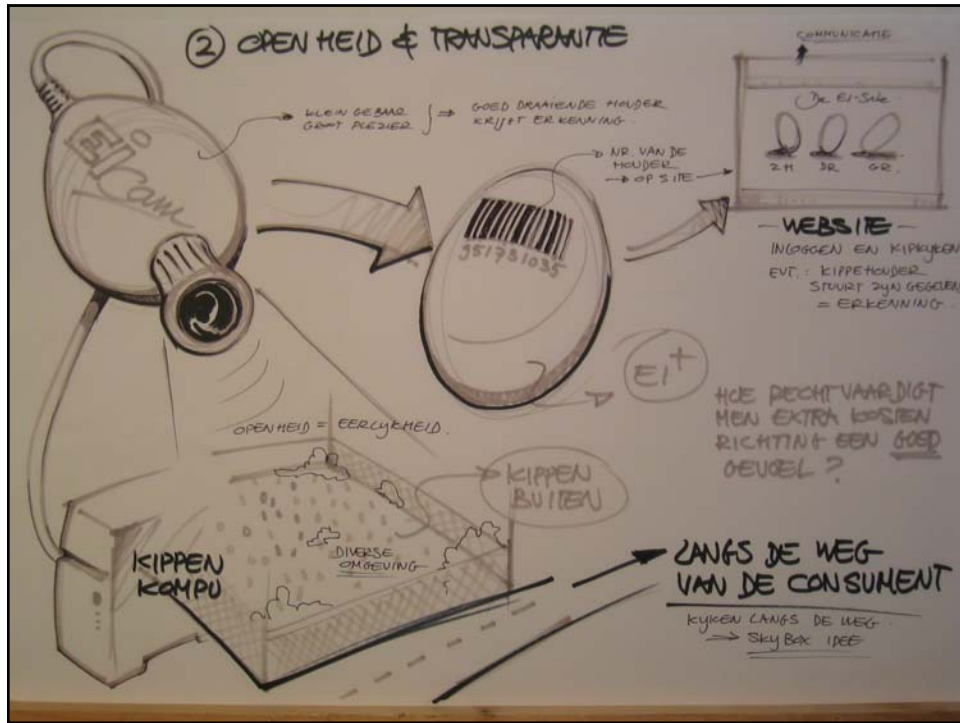 ② OPENHEID & TRANSPARANTIE
COMMUNICATIE
KLEIN GEBAAR
GROOT PLEZIER
GOED DRAAIENDE HOUDER
KRIJGT ERKENNING.
NR. VAN DE
HOUDER
→ OP SITE
De EI-Site
ZH DR GR.
Eicam
951731035
- WEBSITE -
INLOGGEN EN KIPKIJKEN
EVT.: KIPPEHOUDER
STUURT ZIJN GEGEVEN
= ERKENNING.
EI+
HOE RECHTVAARDIGT
MEN EXTRA KOSTEN
RICHTING EEN GOED
GEVOEL?
OPENHEID = EERLIJKHEID.
KIPPEN
BUITEN
KIPPEN
KOMPU
DIVERSE
OMGEVING
LANGS DE WEG
VAN DE CONSUMENT
KIJKEN LANGS DE WEG.
→ SKYBOX IDEE